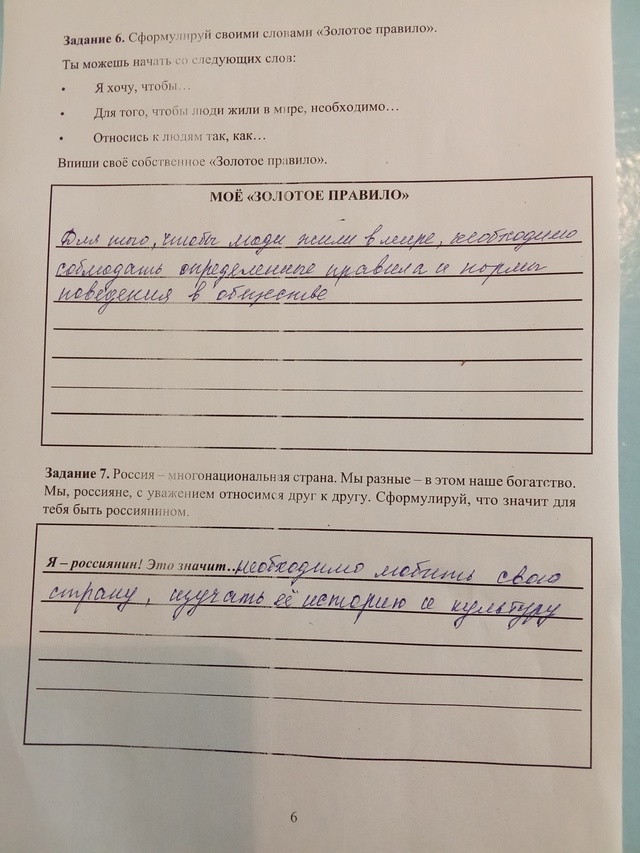 Задание 6. Сформулируй своими словами «Золотое правило».
Ты можешь начать со следующих слов:
• Я хочу, чтобы…
• Для того, чтобы люди жили в мире, необходимо…
• Относись к людям так, как…
Впиши своё собственное «Золотое правило».
МОЁ «ЗОЛОТОЕ ПРАВИЛО»
Для того, чтобы люди жили в мире, необходимо
соблюдать определенные правила и нормы
поведения в обществе
Задание 7. Россия – многонациональная страна. Мы разные – в этом наше богатство.
Мы, россияне, с уважением относимся друг к другу. Сформулируй, что значит для
тебя быть россиянином.
Я – россиянин! Это значит…необходимо любить свою
страну, изучать её историю и культуру
6